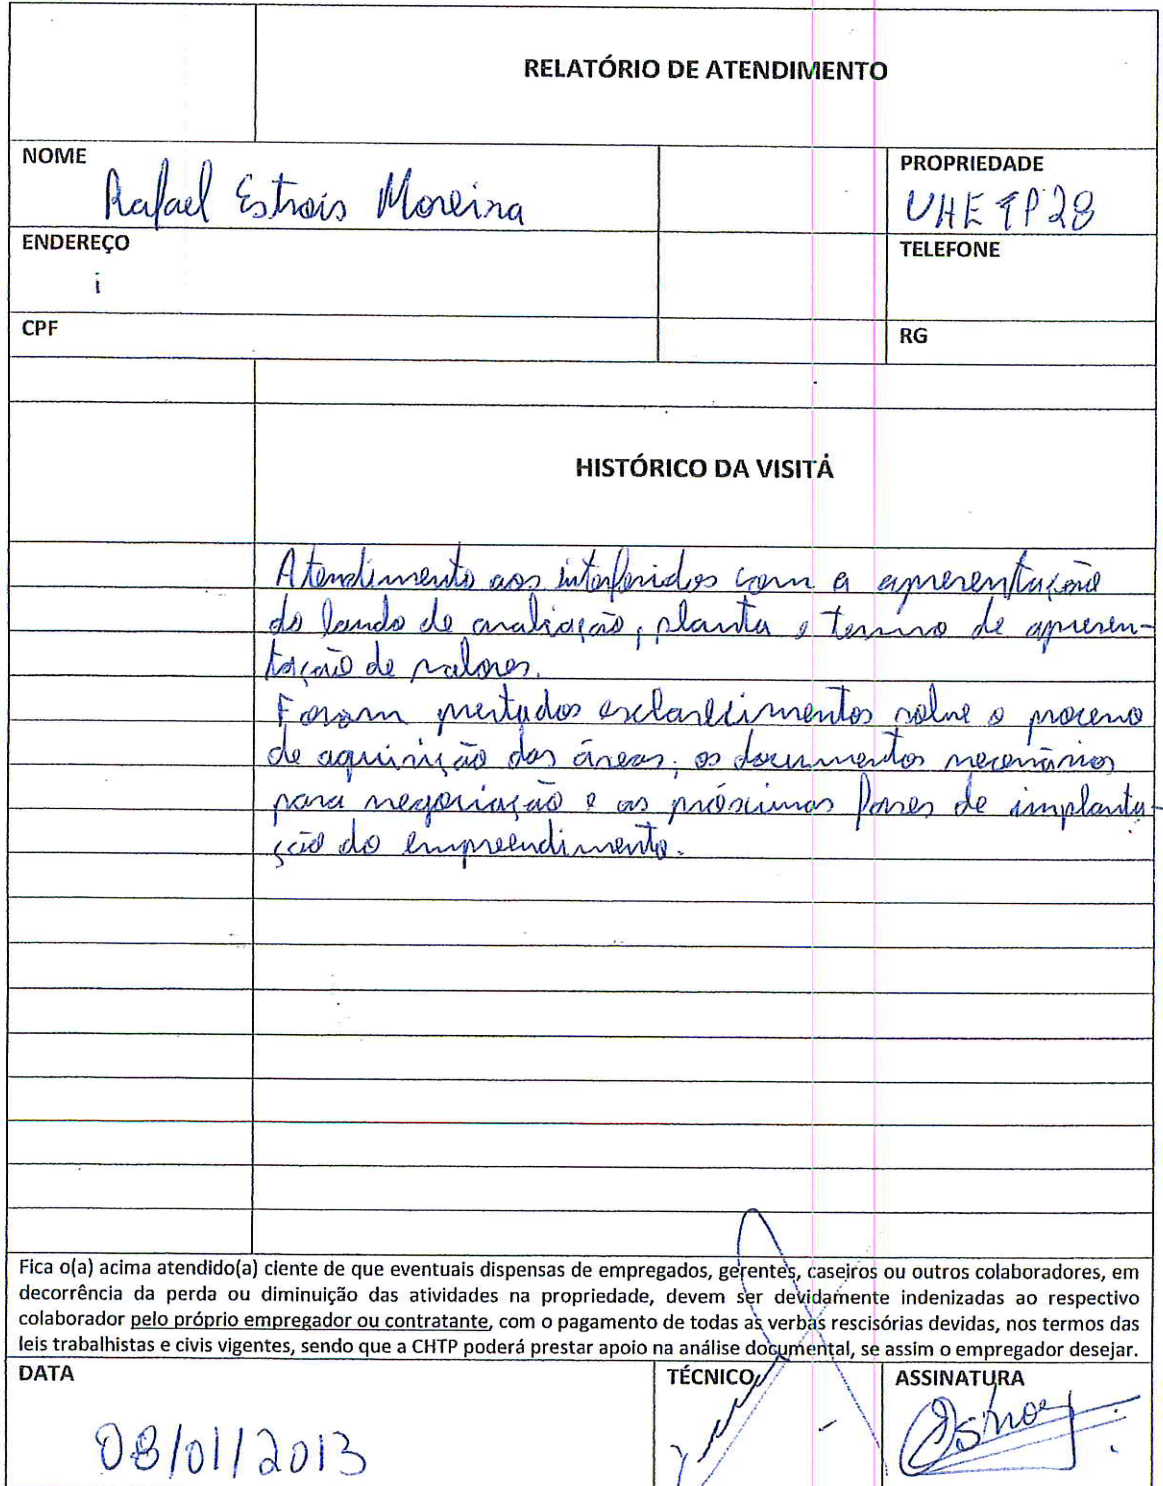 RELATÓRIO DE ATENDIMENTO
NOME
Rafael Estrois Moreira
PROPRIEDADE
UHE TP 28
ENDEREÇO
TELEFONE
CPF
RG
HISTÓRICO DA VISITA
Atendimento aos interferidos com a apresentação
do laudo de avaliação, planta e termo de apresen-
tação de valores.
Foram prestados esclarecimentos sobre o processo
de aquisição das áreas, os documentos necessários
para negociação e as próximas fases de implanta-
ção do empreendimento.
Fica o(a) acima atendido(a) ciente de que eventuais dispensas de empregados, gerentes, caseiros ou outros colaboradores, em
decorrência da perda ou diminuição das atividades na propriedade, devem ser devidamente indenizadas ao respectivo
colaborador pelo próprio empregador ou contratante, com o pagamento de todas as verbas rescisórias devidas, nos termos das
leis trabalhistas e civis vigentes, sendo que a CHTP poderá prestar apoio na análise documental, se assim o empregador desejar.
DATA
08/01/2013
TÉCNICO
ASSINATURA